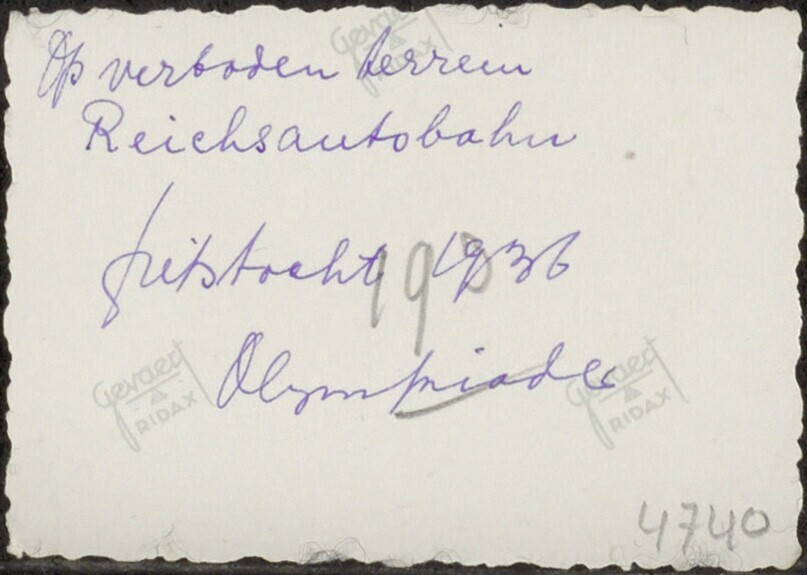 Gevaert
RIDAX
Op verboden terrein
Reichsautobahn
fietstocht 1936
190
Olympiade
Gevaert
RIDAX
Gevaert
RIDAX
4740